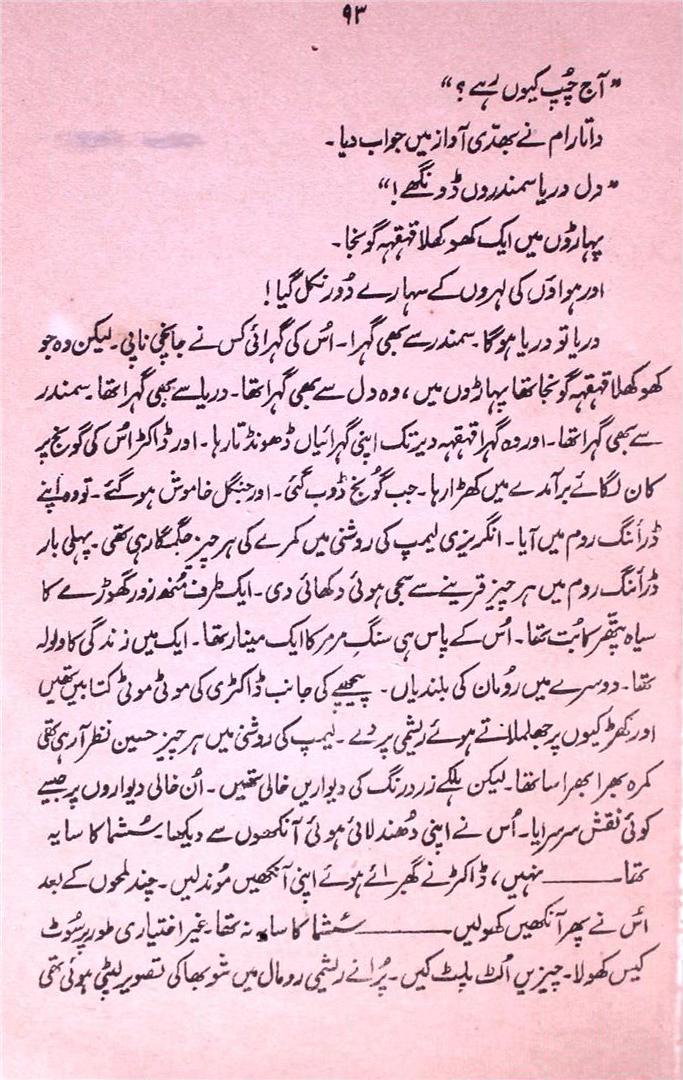 ۹۳
"آج چُپ کیوں رہے؟"
داتارام نے بھدّی آواز میں جواب دیا۔
"دل دریا سمندروں ڈونگھے!"
پہاڑوں میں ایک کھوکھلا قہقہہ گونجا۔
اور ہواؤں کی لہروں کے سہارے دُور نکل گیا!
دریا تو دریا ہوگا۔ سمندر سے بھی گہرا۔ اُس کی گہرائی کس نے جانچی ناپی۔ لیکن وہ جو
کھوکھلا قہقہہ گونجا تھا پہاڑوں میں، وہ دل سے بھی گہرا تھا۔ دریا سے بھی گہرا تھا۔ سمندر
سے بھی گہرا تھا۔ اور وہ گہرا قہقہہ دیر تک اپنی گہرائیاں ڈھونڈتا رہا۔ اور ڈاکٹر اُس کی گونج پر
کان لگائے برآمدے میں کھڑا رہا۔ جب گونج ڈوب گئی۔ اور جنگل خاموش ہو گئے۔ تو وہ اپنے
ڈرائنگ روم میں آیا۔ انگریزی لیمپ کی روشنی میں کمرے کی ہر چیز جگمگا رہی تھی۔ پہلی بار
ڈرائنگ روم میں ہر چیز قرینے سے سجی ہوئی دکھائی دی۔ ایک طرف مُنھ زور گھوڑے کا
سیاہ پتھر کا بُت تھا۔ اُس کے پاس ہی سنگِ مرمر کا ایک مینار تھا۔ ایک میں زندگی کا ولولہ
تھا۔ دوسرے میں رُومان کی بلندیاں۔ پیچھے کی جانب ڈاکٹری کی موٹی موٹی کتابیں تھیں
اور کھڑکیوں پر جھلملاتے ہوئے ریشمی پردے۔ لیمپ کی روشنی میں ہر چیز حسین نظر آ رہی تھی
کمرہ بھرا بھرا سا تھا۔ لیکن ہلکے زرد رنگ کی دیواریں خالی تھیں۔ اُن خالی دیواروں پر جیسے
کوئی نقش سرسرایا۔ اُس نے اپنی دُھندلائی ہوئی آنکھوں سے دیکھا۔ سُشما کا سایہ
تھا ــــــــ نہیں، ڈاکٹر نے گھبرائے ہوئے اپنی آنکھیں مُوند لیں۔ چند لمحوں کے بعد
اُس نے پھر آنکھیں کھولیں ــــــــ سُشما کا سایہ نہ تھا۔ غیر اختیاری طور پر سُوٹ
کیس کھولا۔ چیزیں اُلٹ پلٹ کیں۔ پُرانے ریشمی رومال میں شوبھا کی تصویر لپٹی ہوئی تھی